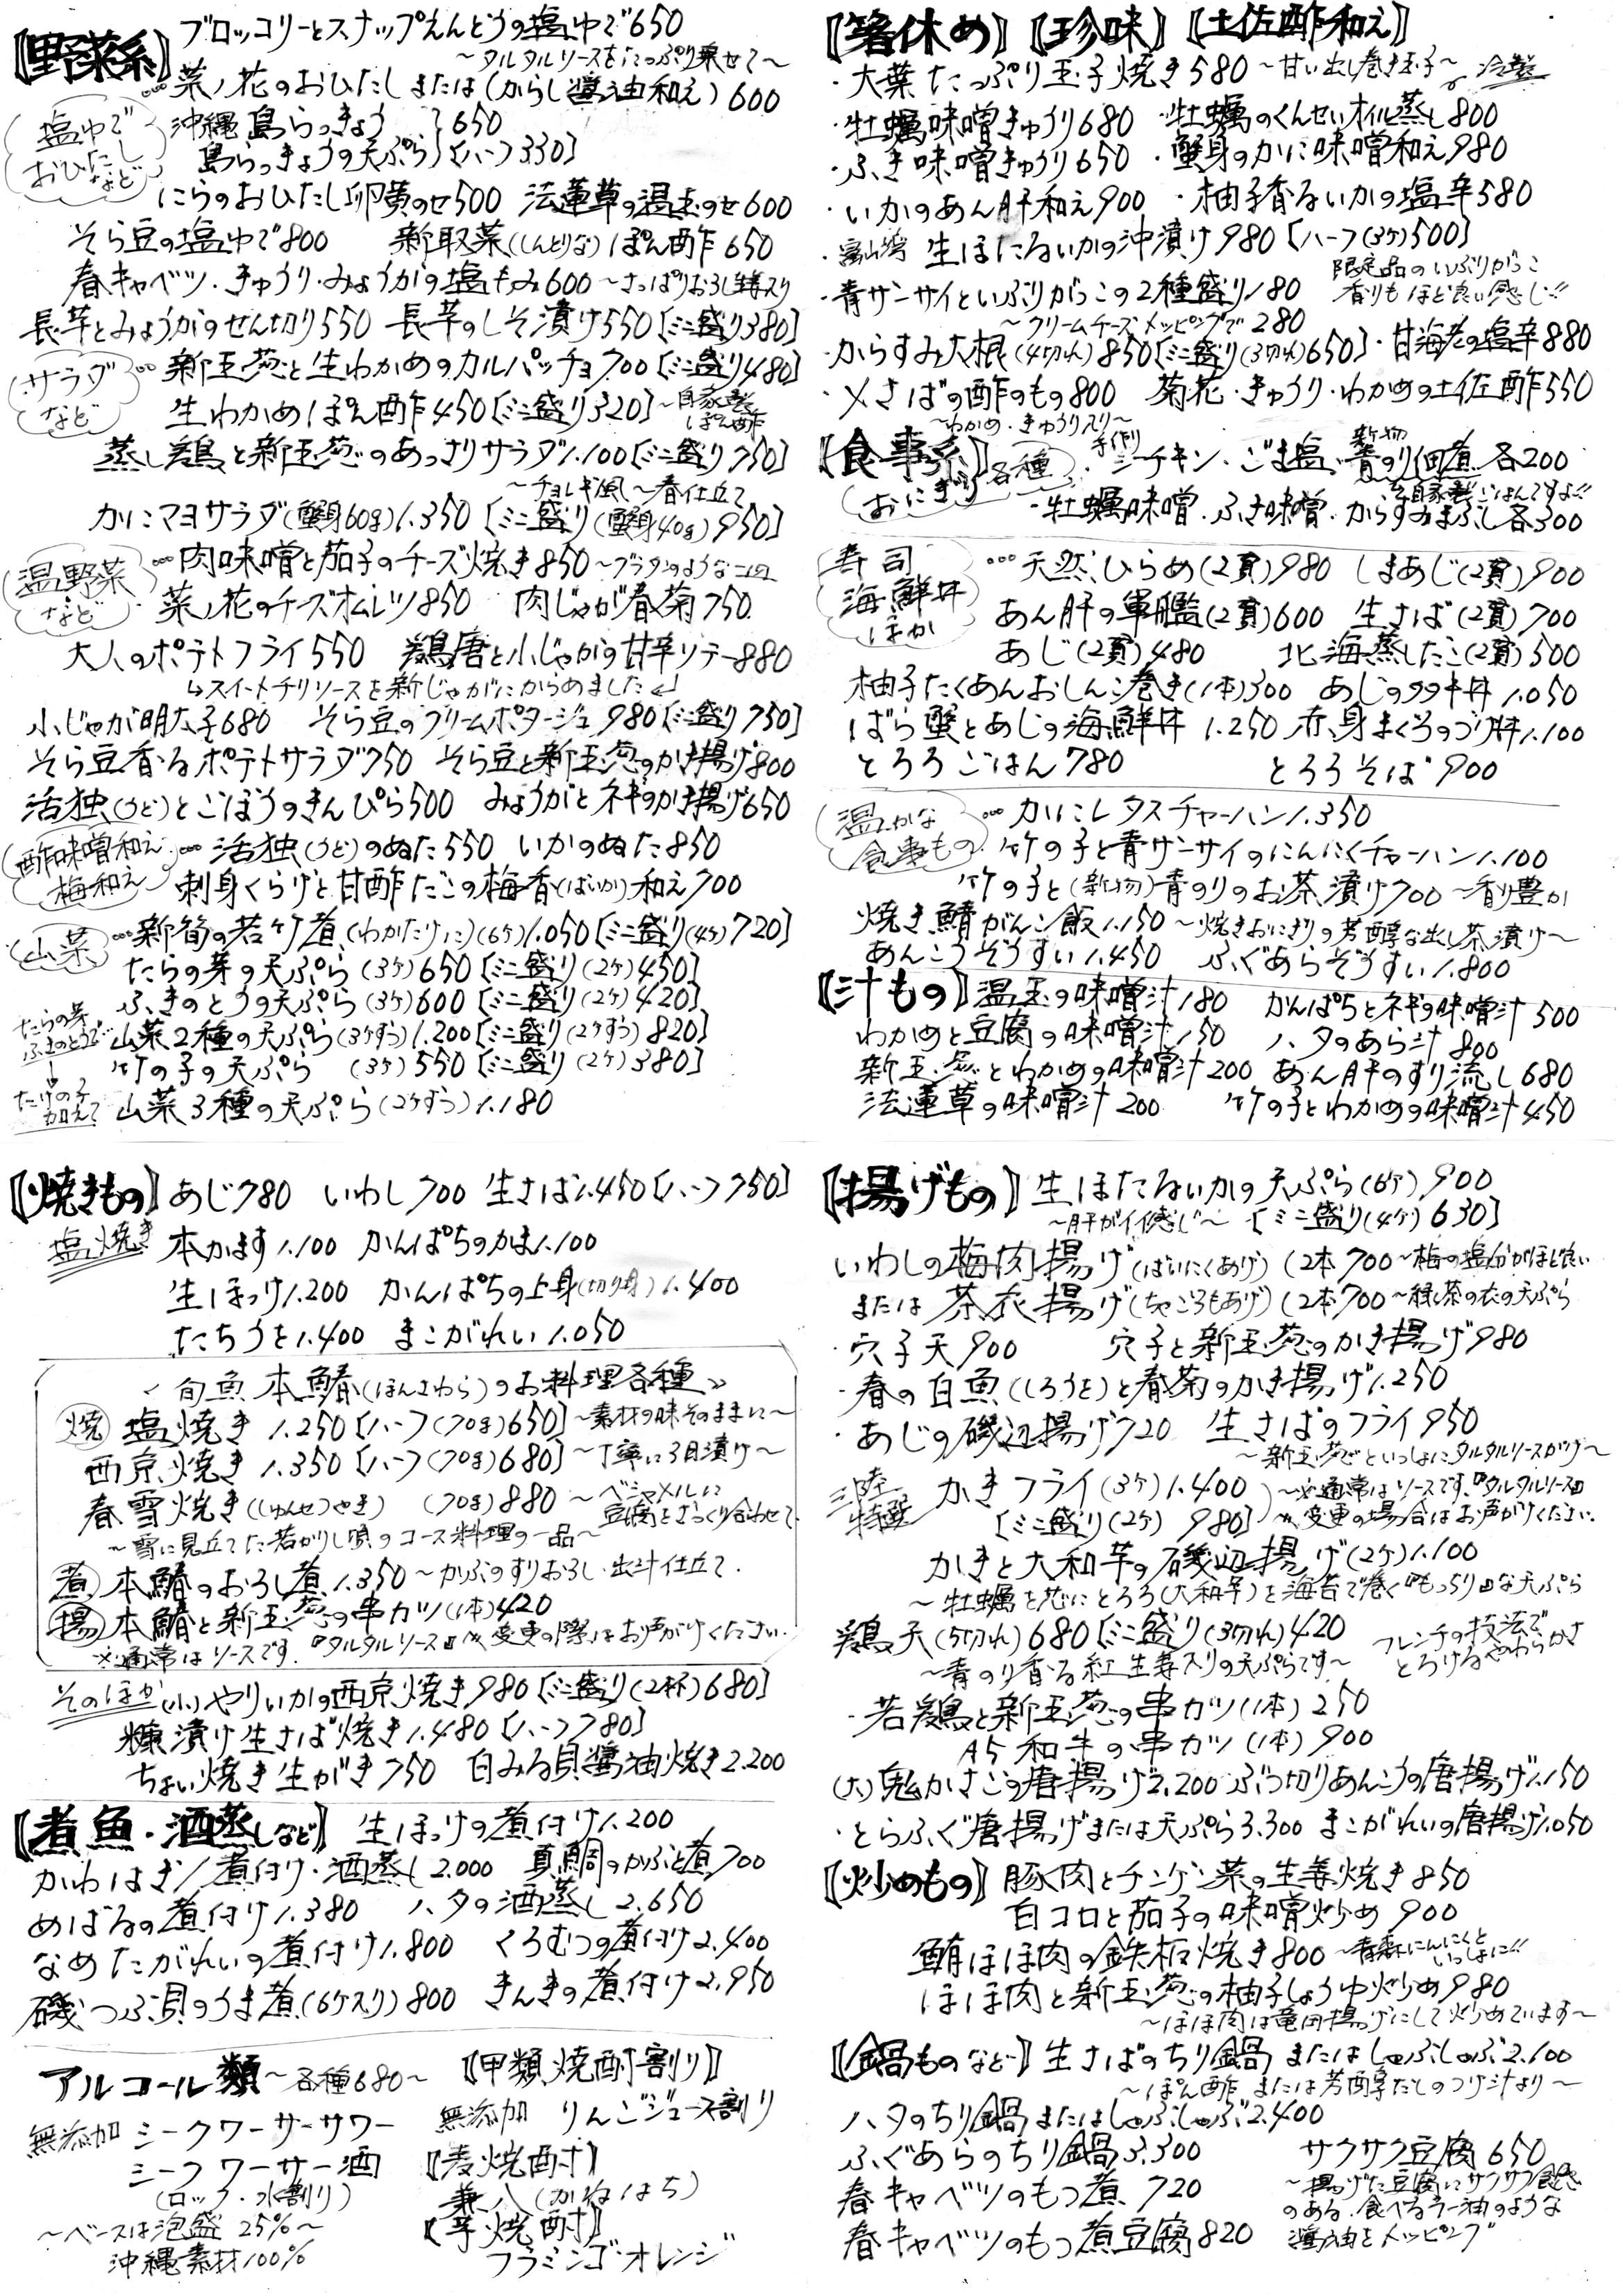 【野菜系】 ブロッコリーとスナップえんどうの塩ゆで650
～タルタルソースをたっぷり乗せて～
塩ゆで おひたし など … 菜ノ花のおひたし または(からし醤油和え) 600
沖縄 島らっきょう 〉650
島らっきょうの天ぷら 〔ハーフ330〕
にらのおひたし卵黄のせ500 法蓮草の温玉のせ600
そら豆の塩ゆで800 新取菜(しんとりな)ぽん酢650
春キャベツ・きゅうり・みょうがの塩もみ600～さっぱりおろし生姜入り
長芋とみょうがのせん切り550 長芋のしそ漬け550〔ミニ盛り380〕
サラダ など … 新玉葱と生わかめのカルパッチョ700〔ミニ盛り480〕
生わかめぽん酢450〔ミニ盛り320〕～自家製ぽん酢
蒸し鶏と新玉葱のあっさりサラダ1.100〔ミニ盛り750〕
～チョレギ風～春仕立て
かにマヨサラダ(蟹身60g)1.350〔ミニ盛り(蟹身40g)950〕
温野菜 など … 肉味噌と茄子のチーズ焼き850～グラタンのような一皿
菜ノ花のチーズオムレツ850 肉じゃが春菊750
大人のポテトフライ550 鶏唐と小じゃがの甘辛ソテー880
↳スイートチリソースを新じゃがにからめました↲
小じゃが明太子680 そら豆のクリームポタージュ980〔ミニ盛り750〕
そら豆香るポテトサラダ750 そら豆と新玉葱のかき揚げ800
活独(うど)とごぼうのきんぴら500 みょうがとネギのかき揚げ650
酢味噌和え 梅和え … 活独(うど)のぬた550 いかのぬた850
刺身くらげと甘酢だこの梅香(ばいか)和え700
山菜 … 新筍の若竹煮(わかたけに)(6ケ)1.050〔ミニ盛り(4ケ)720〕
たらの芽の天ぷら(3ケ)650〔ミニ盛り(2ケ)450〕
ふきのとうの天ぷら(3ケ)600〔ミニ盛り(2ケ)420〕
たらの芽 ふきのとうで… 山菜2種の天ぷら(3ケずつ)1.200〔ミニ盛り(2ケずつ)820〕
竹の子の天ぷら (3ケ)550〔ミニ盛り(2ケ)380〕
↓たけの子加えて 山菜3種の天ぷら(2ケずつ)1.180
【箸休め】【珍味】【土佐酢和え】
・大葉たっぷり玉子焼き580～甘い出し巻き玉子～冷製
・牡蠣味噌きゅうり680 ・牡蠣のくんせいオイル蒸し800
・ふき味噌きゅうり650 ・蟹身のかに味噌和え980
・いかのあん肝和え900 ・柚子香るいかの塩辛580
・富山湾 生ほたるいかの沖漬け980〔ハーフ(3ケ)500〕
・青サンサイといぶりがっこの2種盛り180 限定品のいぶりがっこ 香りもほど良い感じ!!
～クリームチーズトッピングで280
・からすみ大根(4切れ)850〔ミニ盛り(3切れ)650〕・甘海老の塩辛880
・〆さばの酢のもの800 菊花・きゅうり・わかめの土佐酢550
～わかめ・きゅうり入り～
【食事系】 おにぎり各種 ・手作りシーチキン・ごま塩・新物青のり佃煮 各200
自家製ごはんですよ!!
・牡蠣味噌・ふき味噌・からすみまぶし各300
寿司 海鮮丼 ほか … 天然ひらめ(2貫)980 しまあじ(2貫)900
あん肝の軍艦(2貫)600 生さば(2貫)700
あじ(2貫)480 北海蒸したこ(2貫)500
柚子たくあんおしんこ巻き(1本)300 あじのタタキ丼1.050
ばら蟹とあじの海鮮丼1.250 赤身まぐろのづけ丼1.100
とろろごはん780 とろろそば900
温かな 食事もの … かにレタスチャーハン1.350
竹の子と青サンサイのにんにくチャーハン1.100
竹の子と(新物)青のりのお茶漬け700～香り豊か
焼き鯖がんこ飯1.150～焼きおにぎりの芳醇な出し茶漬け～
あんこうぞうすい1.450 ふぐあらぞうすい1.800
【汁もの】温玉の味噌汁180 かんぱちとネギの味噌汁500
わかめと豆腐の味噌汁150 ハタのあら汁800
新玉葱とわかめの味噌汁200 あん肝のすり流し680
法蓮草の味噌汁200 竹の子とわかめの味噌汁450
【焼きもの】あじ780 いわし700 生さば1.450〔ハーフ750〕
塩焼き 本かます1.100 かんぱちのかま1.100
生ほっけ1.200 かんぱちの上身(切り身)1.400
たちうを1.400 まこがれい1.050
〈旬魚 本鰆(ほんさわら)のお料理各種〉
焼 塩焼き 1.250〔ハーフ(70g)650〕～素材の味そのままに～
西京焼き 1.350〔ハーフ(70g)680〕～丁寧に3日漬け～
春雪焼き(しゅんせつやき) (70g)880～ベシャメルに豆腐をざっくり合わせて
～雪に見立てた若かりし頃のコース料理の一品～
煮 本鰆のおろし煮1.350～かぶのすりおろし・出汁仕立て.
揚 本鰆と新玉葱の串カツ(1本)420
※通常はソースです.『タルタルソース』へ変更の際はお声がけください.
そのほか (小)やりいかの西京焼き980〔ミニ盛り(2杯)680〕
糠漬け生さば焼き1.480〔ハーフ780〕
ちょい焼き生がき750 白みる貝醤油焼き2.200
【煮魚・酒蒸しなど】 生ほっけの煮付け1.200
かわはぎ/煮付け・酒蒸し2.000 真鯛のかぶと煮700
めばるの煮付け1.380 ハタの酒蒸し2.650
なめたがれいの煮付け1.800 くろむつの煮付け2.400
磯つぶ貝のうま煮(6ケ入り)800 きんきの煮付け2.950
アルコール類～各種680～
無添加 シークワーサーサワー
シークワーサー酒
(ロック・水割り)
～ベースは泡盛 25%～
沖縄素材100%
【甲類焼酎割り】
無添加 りんごジュース割り
【麦焼酎】
兼八(かねはち)
【芋焼酎】
フラミンゴオレンジ
【揚げもの】生ほたるいかの天ぷら(6ケ)900
～肝がイイ感じ～〔ミニ盛り(4ケ)630〕
いわしの梅肉揚げ(ばいにくあげ)(2本700～梅の塩分がほど良い
または 茶衣揚げ(ちゃごろもあげ)(2本700～緑茶の衣の天ぷら
・穴子天900 穴子と新玉葱のかき揚げ980
・春の白魚(しろうを)と春菊のかき揚げ1.250
・あじの磯辺揚げ720 生さばのフライ950
～新玉葱といっしょにタルタルソースがけ～
三陸特選 かきフライ(3ケ)1.400 ～※通常はソースです.『タルタルソース』
〔ミニ盛り(2ケ) 980〕へ変更の場合はお声がけください.
かきと大和芋の磯辺揚げ(2ケ)1.100
～牡蠣を芯にとろろ(大和芋)を海苔で巻く『もっちり』な天ぷら
鶏天(5切れ)680〔ミニ盛り(3切れ)420 フレンチの技法で とろけるやわらかさ
～青のり香る紅生姜入りの天ぷらです～
・若鶏と新玉葱の串カツ(1本)250
A5和牛の串カツ(1本)900
(大)鬼かさごの唐揚げ2.200 ぶつ切りあんこうの唐揚げ1.150
・とらふぐ唐揚げまたは天ぷら3.300 まこがれいの唐揚げ1.050
【炒めもの】豚肉とチンゲン菜の生姜焼き850
白コロと茄子の味噌炒め900
鮪ほほ肉の鉄板焼き800～青森にんにくといっしょに!!
ほほ肉と新玉葱の柚子しょうゆ炒め980
～ほほ肉は竜田揚げにして炒めています～
【鍋ものなど】生さばのちり鍋またはしゃぶしゃぶ2.100
～ぽん酢または芳醇だしのつけ汁より～
ハタのちり鍋またはしゃぶしゃぶ2.400
ふぐあらのちり鍋3.300
春キャベツのもつ煮720
春キャベツのもつ煮豆腐820
サクサク豆腐650
～揚げた豆腐にサクサク食感
のある.食べるラー油のような
醤油をトッピング